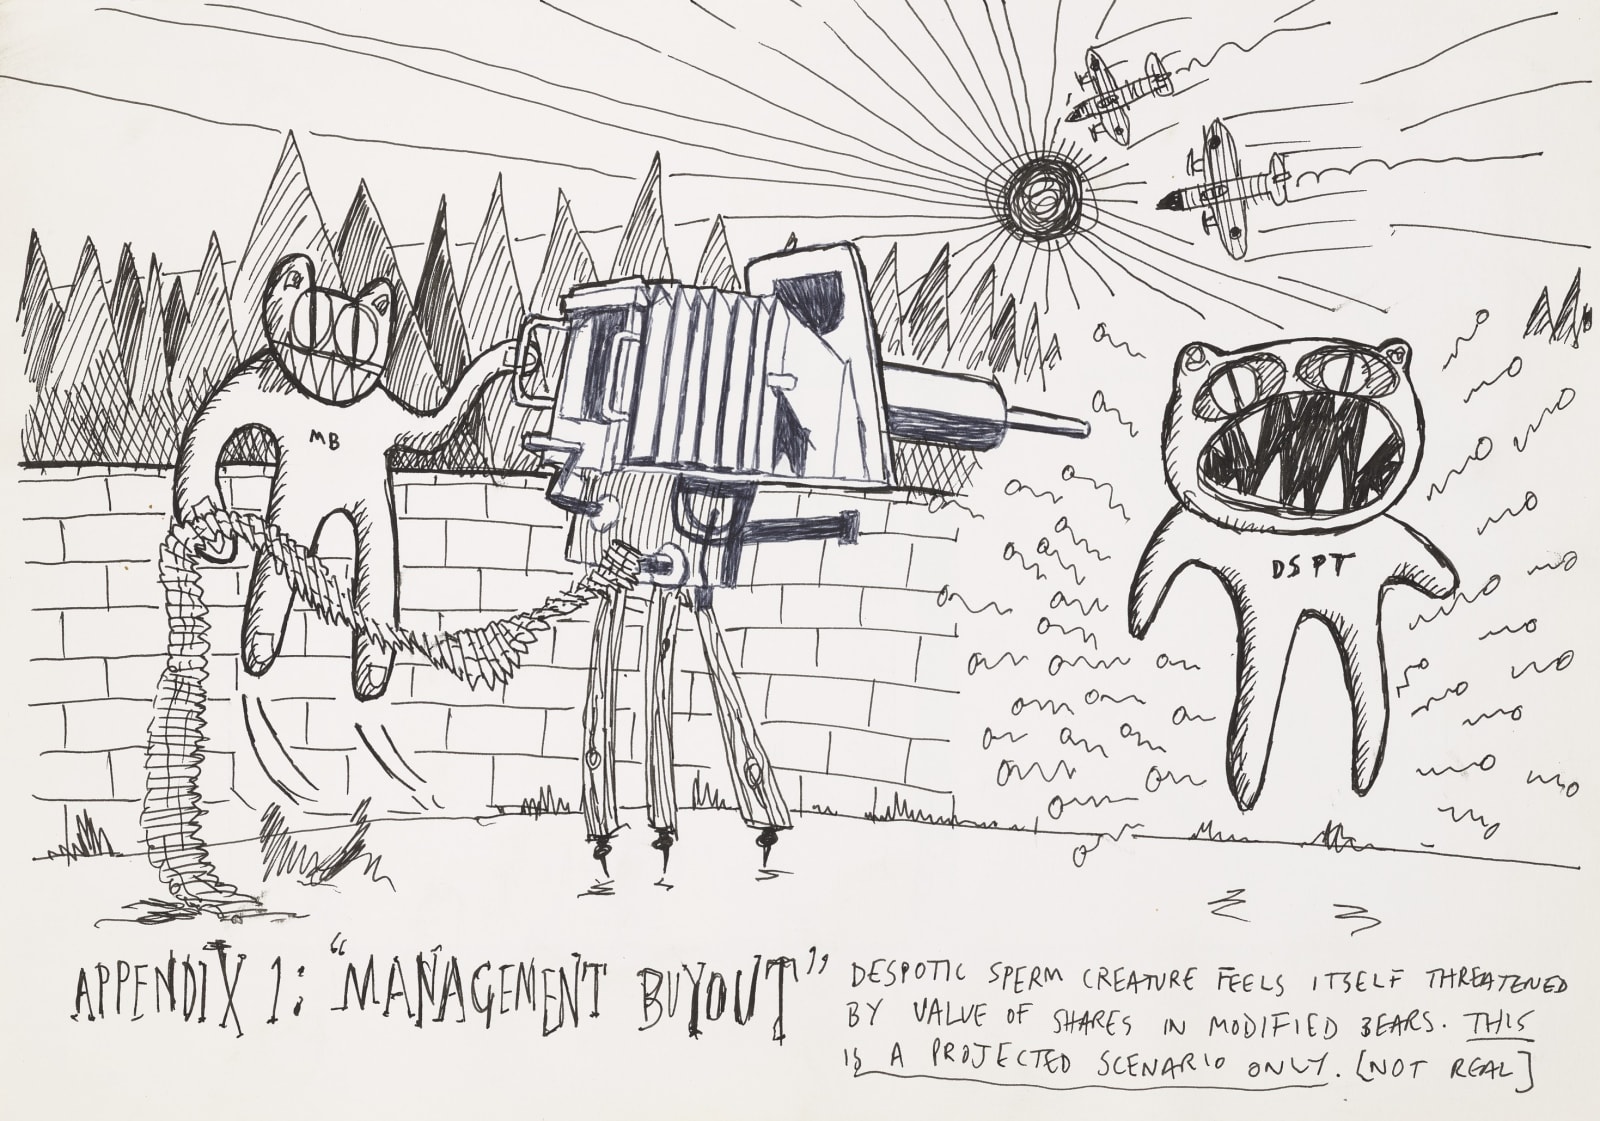 MB
DSPT
APPENDIX 1: "MANAGEMENT BUYOUT"
DESPOTIC SPERM CREATURE FEELS ITSELF THREATENED
BY VALUE OF SHARES IN MODIFIED BEARS. THIS
IS A PROJECTED SCENARIO ONLY. [NOT REAL]